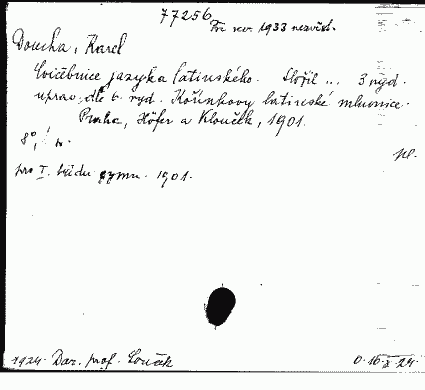 77256
Při rev. 1933 nezjišt.
Doucha, Karel
Cvičebnice jazyka latinského. Složil ... 3 vyd.
uprav. dle 6. vyd. Kořínkovy latinské mluvnice.
Praha, Höfer a Klouček, 1901.
8°,
pl.
pro I. třídu gymn. 1901.
1924. Dar. prof. Louček
0.16 24